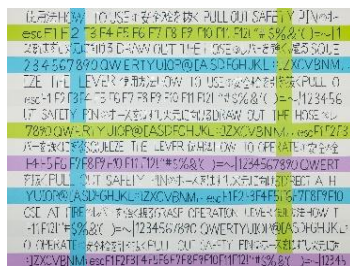 使用法HOW TO USE 安全栓を抜く PULL OUT SAFETY PIN
esc F1 F2 F3 F4 F5 F6 F7 F8 F9 F10 F11 F12!"#$%&'( )=~|
DRAW OUT THE HOSE レバーを強く握る SQUE
234567890QWERTYUIOP@[ASDFGHJKL:]ZXCVBNM,
EZE THE LEVER 使用法HOW TO USE 安全栓を抜く PULL O
esc F1 F2 F3 F4 F5 F6 F7 F8 F9 F10 F11 F12!"#$%&'( )=~|123456
UT SAFETY PIN ホースをはずし火元に向ける DRAW OUT THE HOSE レ
7890QWERTYUIOP@[ASDFGHJKL:]ZXCVBNM, esc F1 F2 F3
バーを強く SQUEEZE THE LEVER HOW TO OPERATE 安全栓
F4 F5 F6 F7 F8 F9 F10 F11 F12!"#$%&'( )=~|1234567890QWERT
を抜く PULL OUT SAFETY PIN ホースをはずし火元に向ける DIRECT A H
YUIOP@[ASDFGHJKL:]ZXCVBNM, esc F1 F2 F3 F4 F5 F6 F7 F8 F9 F10
OSE AT FIRE レバーを強く握る GRASP OPERATION LEVER 使用法HOW T
F11 F12!"#$%&'( )=~|1234567890QWERTYUIOP@[ASDFGHJKL:
O OPERATE 安全栓を抜く PULL OUT SAFETY PIN ホースをはずし火元に
]ZXCVBNM, esc F1 F2 F3 F4 F5 F6 F7 F8 F9 F10 F11 F12!"#$%&'( )